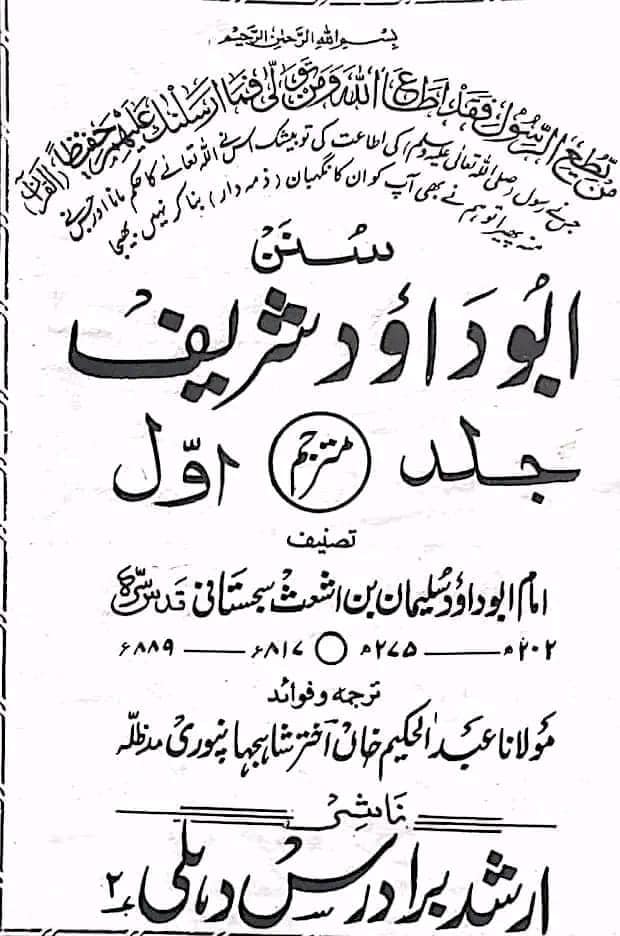 بسم اللہ الرحمن الرحیم
من یطع الرسول فقد اطاع اللہ ومن تولی فما ارسلنک علیھم حفیظا (القرآن)
جس نے رسول (صلی اللہ تعالیٰ علیہ وسلم) کی اطاعت کی تو بیشک اس نے اللہ تعالےٰ کا حکم مانا اور جس نے
منہ پھیرا تو ہم نے بھی آپ کو ان کا نگہبان (ذمہ دار) بنا کر نہیں بھیجا
سُنن
ابُوداؤد شریف
جلد مترجم اوّل
تصنیف
امام ابوداؤد سُلیمان بن اشعث سجستانی قدس سرہٗ
۲۰۲ھ ——— ۲۷۵ھ ○ ۸۱۷ء ——— ۸۸۹ء
ترجمہ و فوائد
مولانا عبد الحکیم خاں اختر شاہجہانپوری مدظلہ
ناشر
ارشد برادرس دہلی ۲